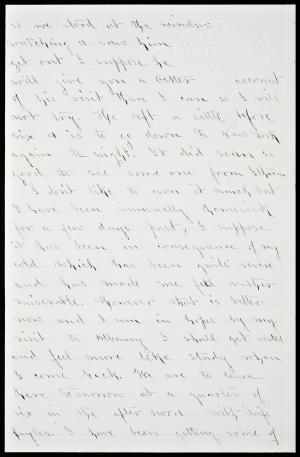 so we stood at the window
watching & saw him
get out I suppose he
will give you a better account
of his visit than I can so I will
not try. He left a little before
six & is to go down to New York
again to night. It did seem so
good to see some one from
I don't like to own it much, but
I have been unusually homesick
for a few days past, I suppose
it has been in consequence of my
cold which has been quite severe
and has made me feel rather
miserable. However that is better
now and I am in hopes by my
visit to Albany I shall get rested
and feel more like study when
I come back. We are to leave
here tomorrow at a quarter of
six in the after noon with Miss
I have been getting some of